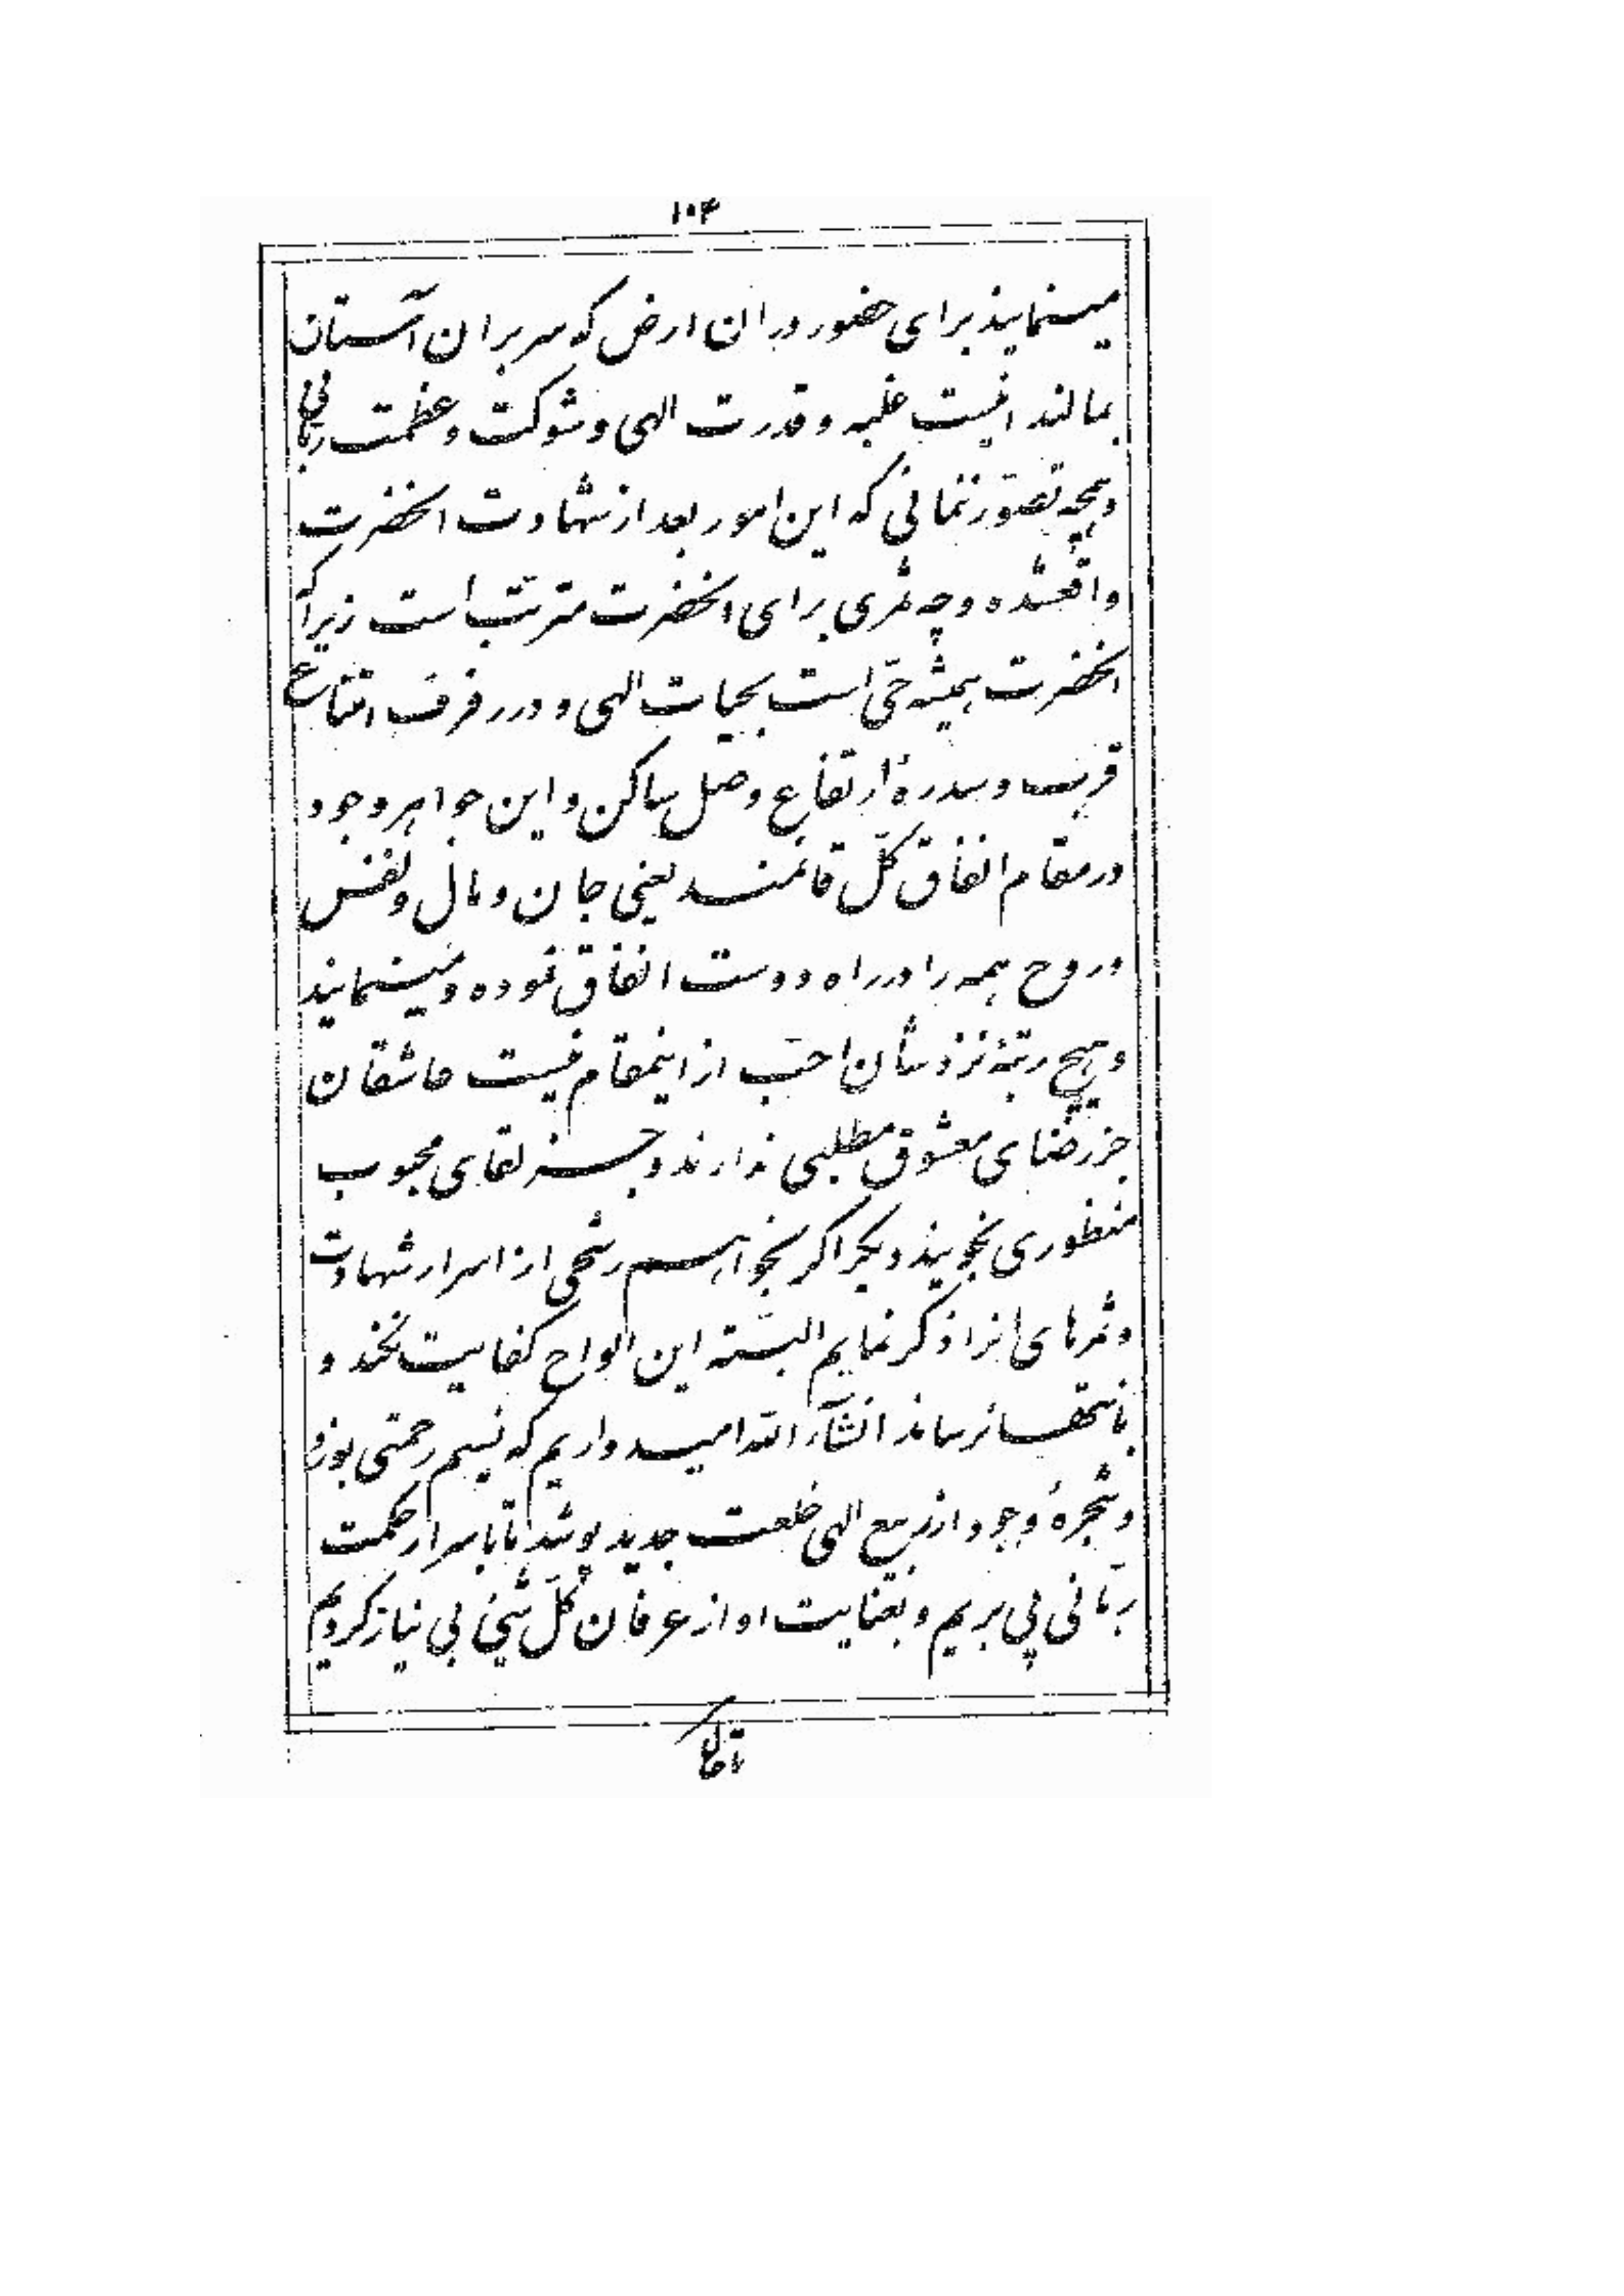 ۱۰۴
مینمایند برای حضور در ان ارض که سر بر ان آستان
بمالند اینست غلبه و قدرت الهی و شوکت و عظمت ربانی
و همچه تصوّر ننمائی که این امور بعد از شهادت انحضرت
واقعشده و چه ثمری برای انحضرت مترتّب است زیرا که
انحضرت همیشه حیّ است بحیات الهی و در رفرف امتناع
قرب و سدرهٔ ارتفاع وصل ساکن و این جواهر وجود
در مقام انفاق کلّ قائمند یعنی جان و مال و نفس
و روح همه را در راه دوست انفاق نموده و مینمایند
و هیچ رتبهٔ نزدشان احبّ از اینمقام نیست عاشقان
جز رضای معشوق مطلبی ندارند و جز لقای محبوب
منظوری نجویند دیگر اگر بخواهم رشحی از اسرار شهادت
و ثمرهای انرا ذکر نمایم البتّه این الواح کفایت نکند و
بانتها نرساند انشآء اللّه امیدواریم که نسیم رحمتی بوزد
و شجرهٔ وجود از ربیع الهی خلعت جدید پوشد تا باسرار حکمت
ربّانی پی بریم و بعنایت او از عرفان کلّ شیئ بی نیاز گردیم